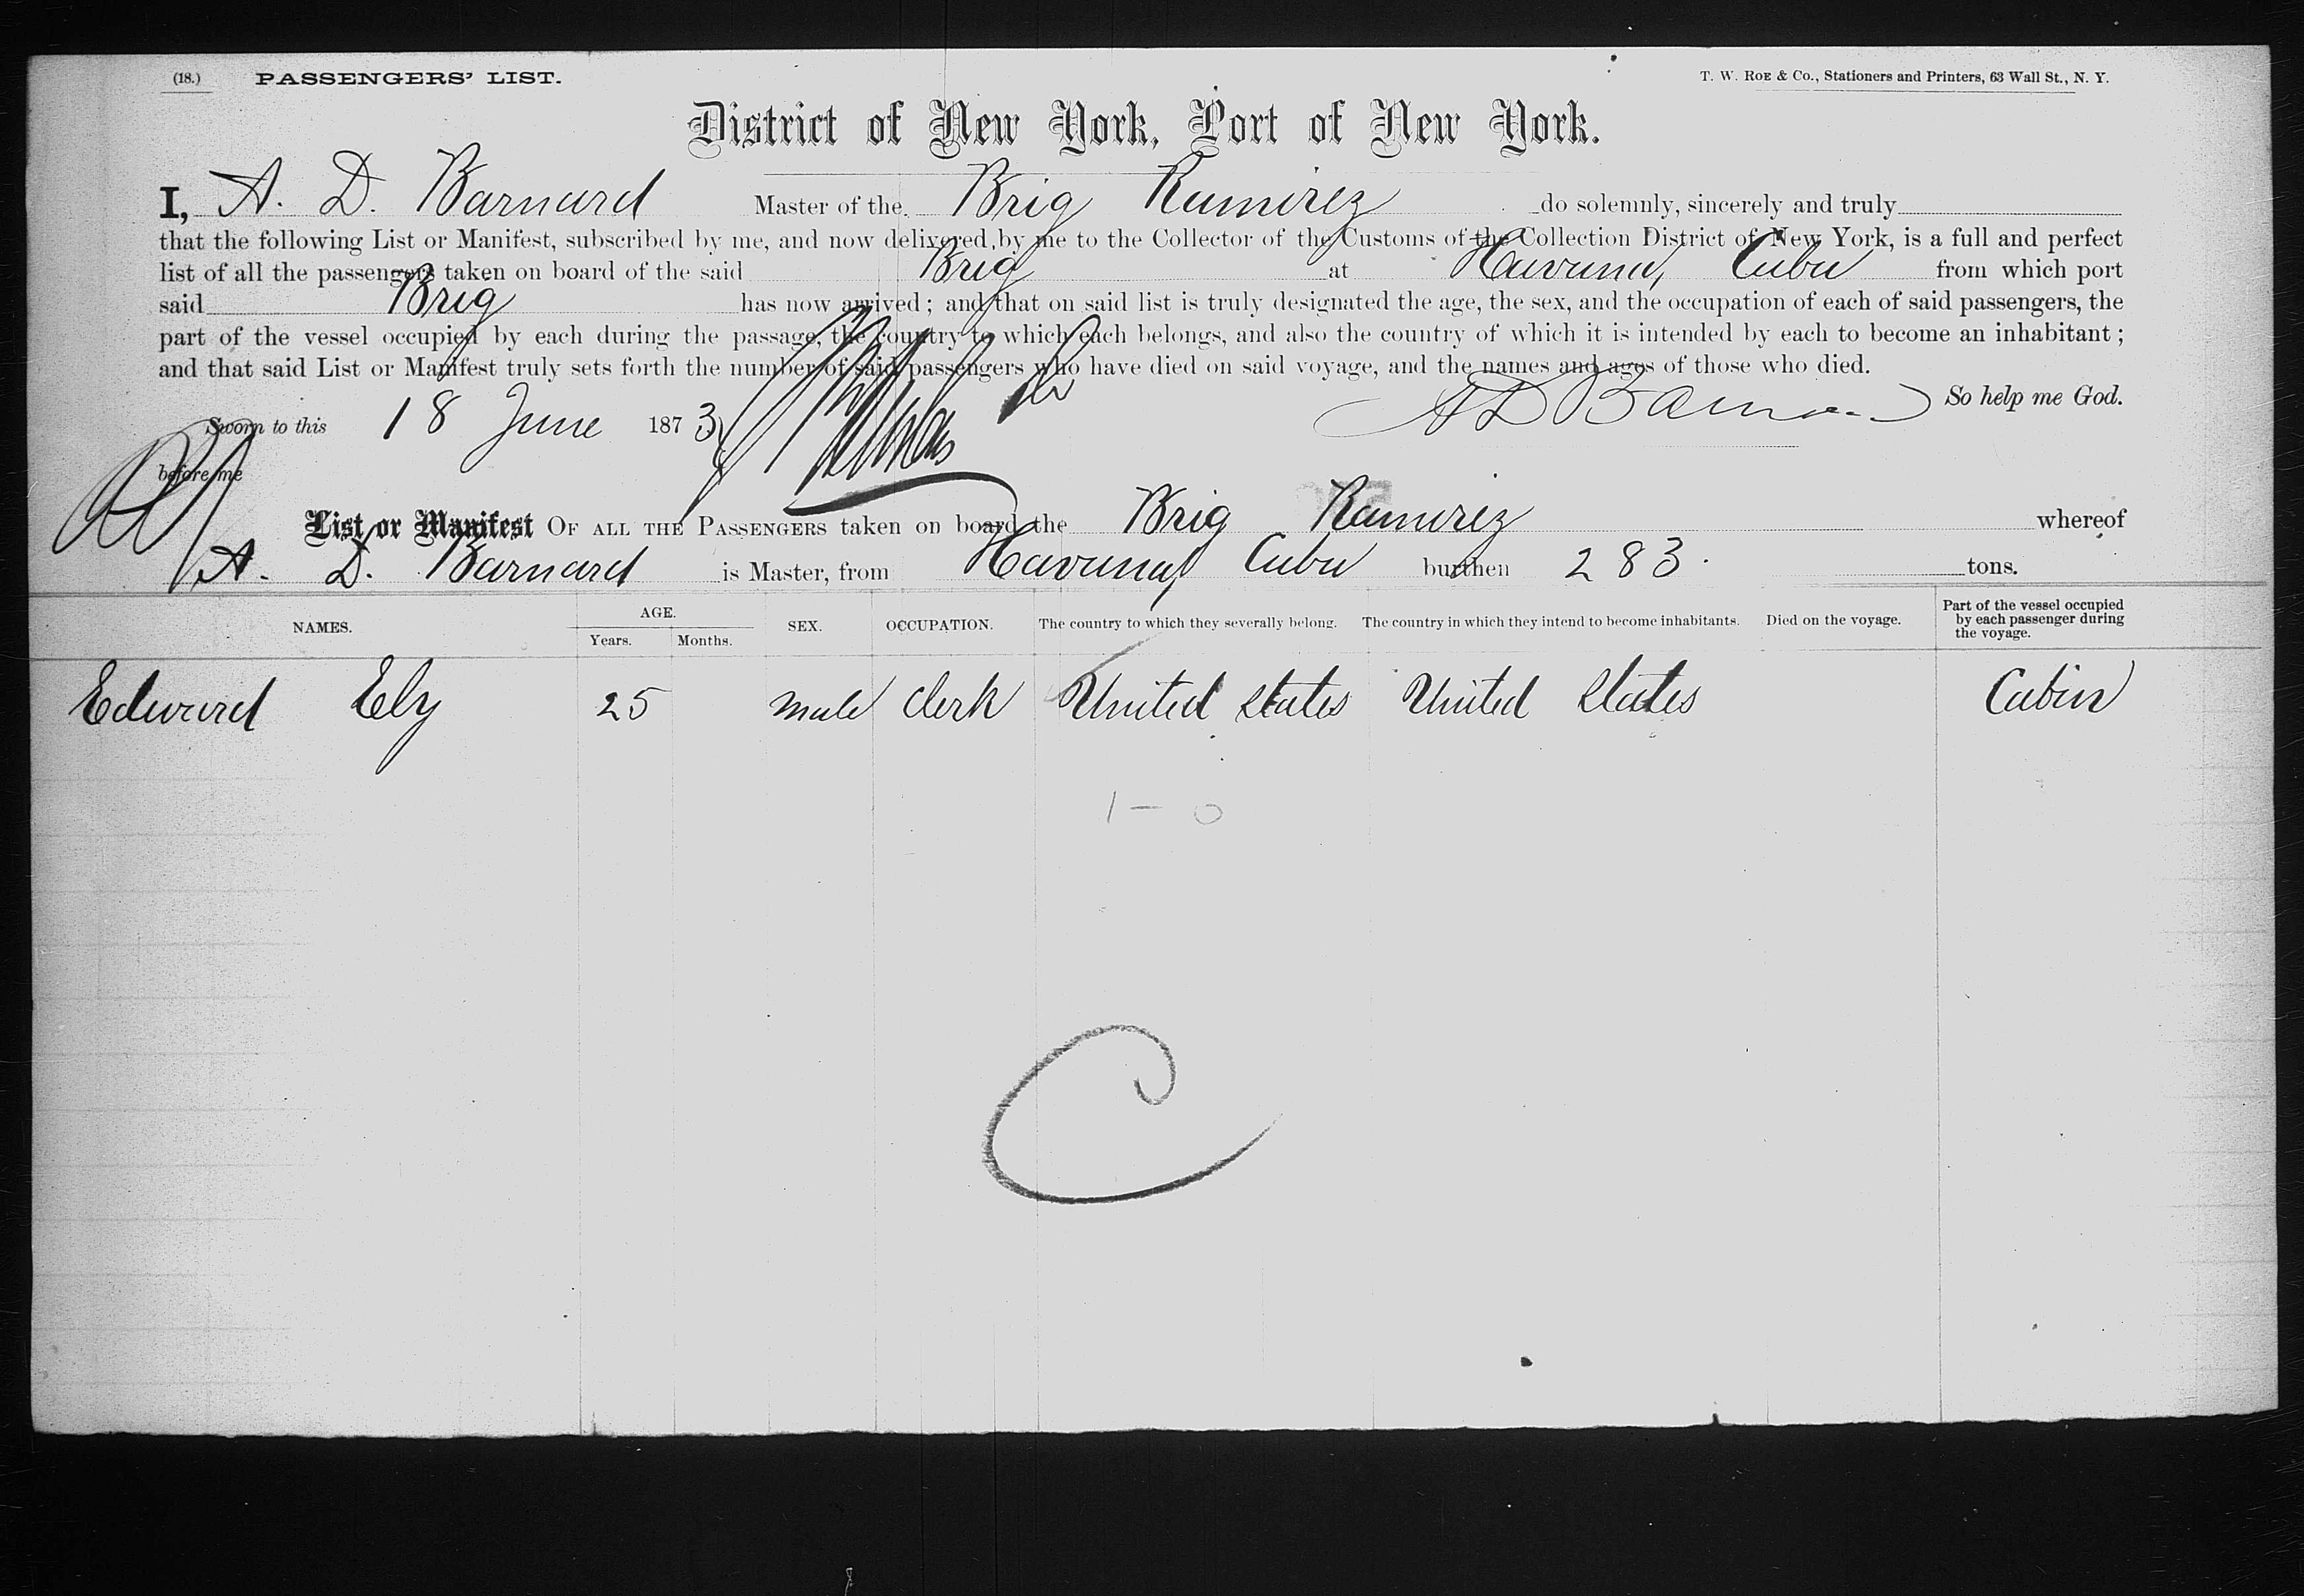 (18.) PASSENGERS' LIST. T. W. ROE & Co., Stationers and Printers, 63 Wall St., N. Y.
District of New York, Port of New York.
I, A. D. Barnard Master of the Brig Ramirez do solemnly, sincerely and truly
that the following List or Manifest, subscribed by me, and now delivered by me to the Collector of the Customs of the Collection District of New York, is a full and perfect
list of all the passengers taken on board of the said Brig at Havana, Cuba from which port
said Brig has now arrived; and that on said list is truly designated the age, the sex, and the occupation of each of said passengers, the
part of the vessel occupied by each during the passage, the country to which each belongs, and also the country of which it is intended by each to become an inhabitant;
and that said List or Manifest truly sets forth the number of said passengers who have died on said voyage, and the names and ages of those who died.
So help me God.
Sworn to this 18 June 1873 A D Barnard
before me
List or Manifest OF ALL THE PASSENGERS taken on board the Brig Ramirez whereof
A. D. Barnard is Master, from Havana, Cuba burthen 283. tons.
NAMES. AGE. SEX. OCCUPATION. The country to which they severally belong. The country in which they intend to become inhabitants. Died on the voyage. Part of the vessel occupied by each passenger during the voyage.
Years. Months.
Edward Ely 25 male Clerk United States United States Cabin
1 - 0
C